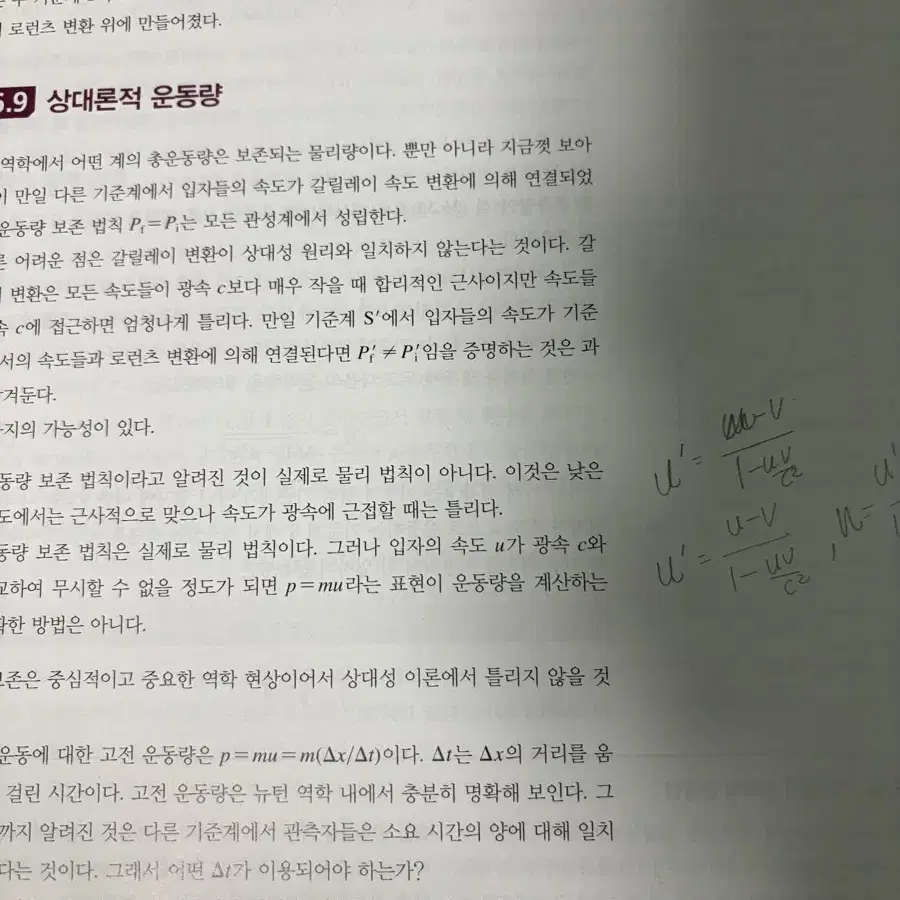 로런츠 변환 위에 만들어졌다.
5.9 상대론적 운동량
역학에서 어떤 계의 총운동량은 보존되는 물리량이다. 뿐만 아니라 지금껏 보아
만일 다른 기준계에서 입자들의 속도가 갈릴레이 속도 변환에 의해 연결되었
운동량 보존 법칙 P_f = P_i는 모든 관성계에서 성립한다.
어려운 점은 갈릴레이 변환이 상대성 원리와 일치하지 않는다는 것이다. 갈
변환은 모든 속도들이 광속 c보다 매우 작을 때 합리적인 근사이지만 속도들
c에 접근하면 엄청나게 틀리다. 만일 기준계 S′에서 입자들의 속도가 기준
서의 속도들과 로런츠 변환에 의해 연결된다면 P′_f ≠ P′_i임을 증명하는 것은 과
겨둔다.
지의 가능성이 있다.
동량 보존 법칙이라고 알려진 것이 실제로 물리 법칙이 아니다. 이것은 낮은
도에서는 근사적으로 맞으나 속도가 광속에 근접할 때는 틀리다.
동량 보존 법칙은 실제로 물리 법칙이다. 그러나 입자의 속도 u가 광속 c와
교하여 무시할 수 없을 정도가 되면 p = mu라는 표현이 운동량을 계산하는
확한 방법은 아니다.
보존은 중심적이고 중요한 역학 현상이어서 상대성 이론에서 틀리지 않을 것
운동에 대한 고전 운동량은 p = mu = m(Δx/Δt)이다. Δt는 Δx의 거리를 움
걸린 시간이다. 고전 운동량은 뉴턴 역학 내에서 충분히 명확해 보인다. 그
까지 알려진 것은 다른 기준계에서 관측자들은 소요 시간의 양에 대해 일치
다는 것이다. 그래서 어떤 Δt가 이용되어야 하는가?
u′ = u-v / 1-u v/c2
u′ = u-v / 1-uv/c2 , u = u′